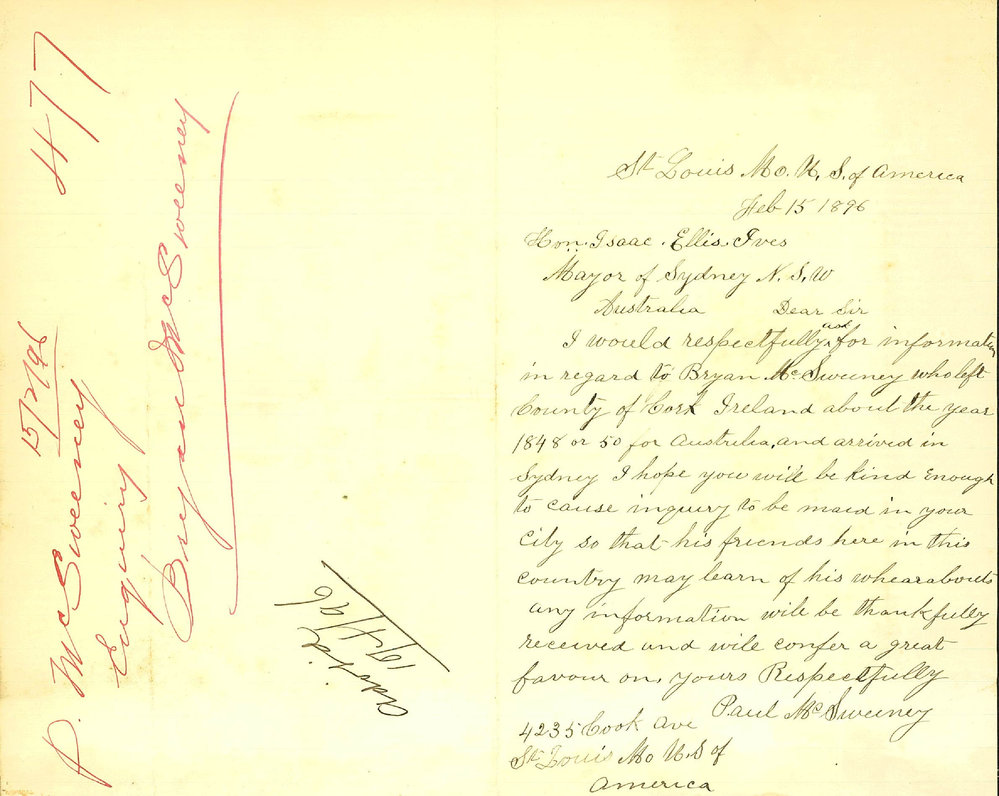 477
15/2/96
P. McSweeney
Enquiring
Bryan McSweeney
ads'd
19/4/96
St Louis Mo. U. S. of America
Feb 15 1896
Hon. Isaac. Ellis. Ives
Mayor of Sydney N. S. W
Australia Dear Sir
I would respectfully ask for information
in regard to Bryan McSweeney who left
County of Cork Ireland about the year
1848 or 50 for Australia, and arrived in
Sydney I hope you will be kind Enough
to cause inquiry to be maid in your
City so that his friends here in this
country may learn of his whearabouts
any information will be thankfully
received and will confer a great
favour on, yours Respectfully
Paul McSweeney
4235 Cook Ave
St Louis Mo U.S of
America